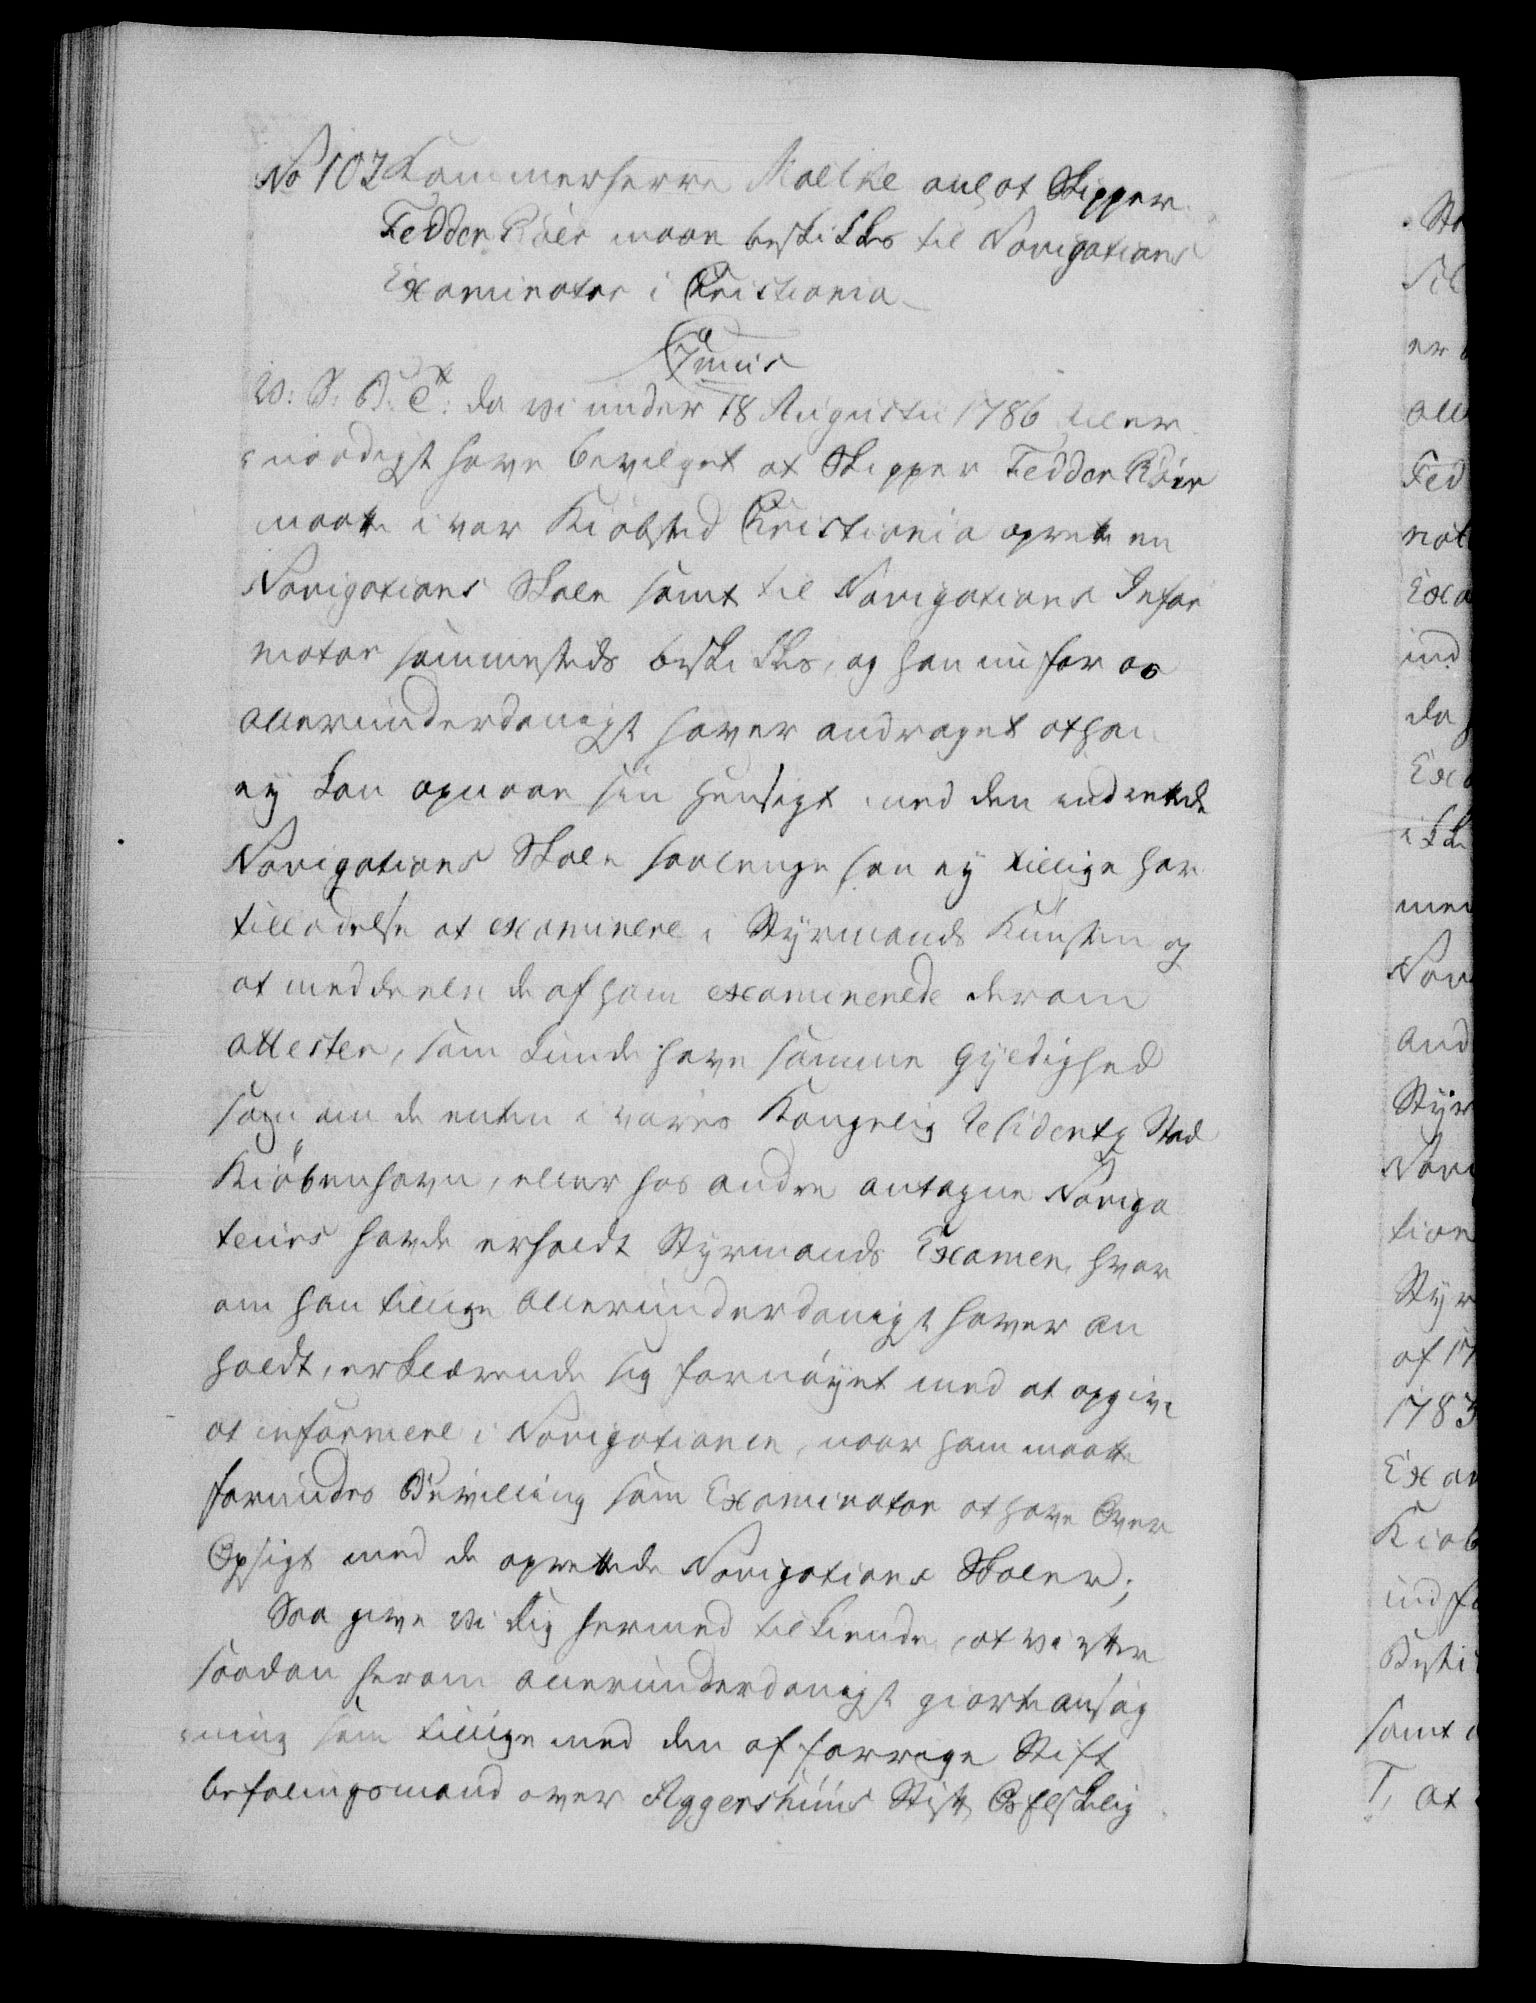 No 102 Kammerherre Moltke anl. at Skipper
Fedder Röer maae beskikkes til Navigations
Examinator i Christiania
C 7mus
V: S: G: T: da vi under 18 Augusti 1786 aller
naadigst have bevilget at Skipper Fedder Röer
maatte i vor Kiöbsted Christiania oprette en
Navigations Skole samt til Navigations Infor
mator sammesteds beskikkes, og han nu for os
allerunderdanigst haver andraget at han
ey kan opnaae sin Hensigt med den indrettede
Navigations Skole saalenge han ey tillige har
tilladelse at examinere i Styrmands Kunsten og
at meddeele de af ham examinerede derom
attester, som kunde have samme gyldighed
som om de enten i vores Kongelig Residentz Stad
Kiöbenhavn, eller hos andre antagne Naviga
teurs havde erholdt Styrmands Examen, hvor
om han tillige allerunderdanigst haver an
holdt, erklærende sig fornöyet med at opgive
at informere i Navigationen, naar ham maatte
forundes Bevilling som Examinator at have Over
Opsigt med de oprettede Navigations Skoler;
Saa give vi dig hermed tilkiende, at vi efter
saadan herom allerunderdanigst giorte ansög
ning som tillige med den af forrige Stift
befalingsmand over Aggershuus Stift Os Elskelig